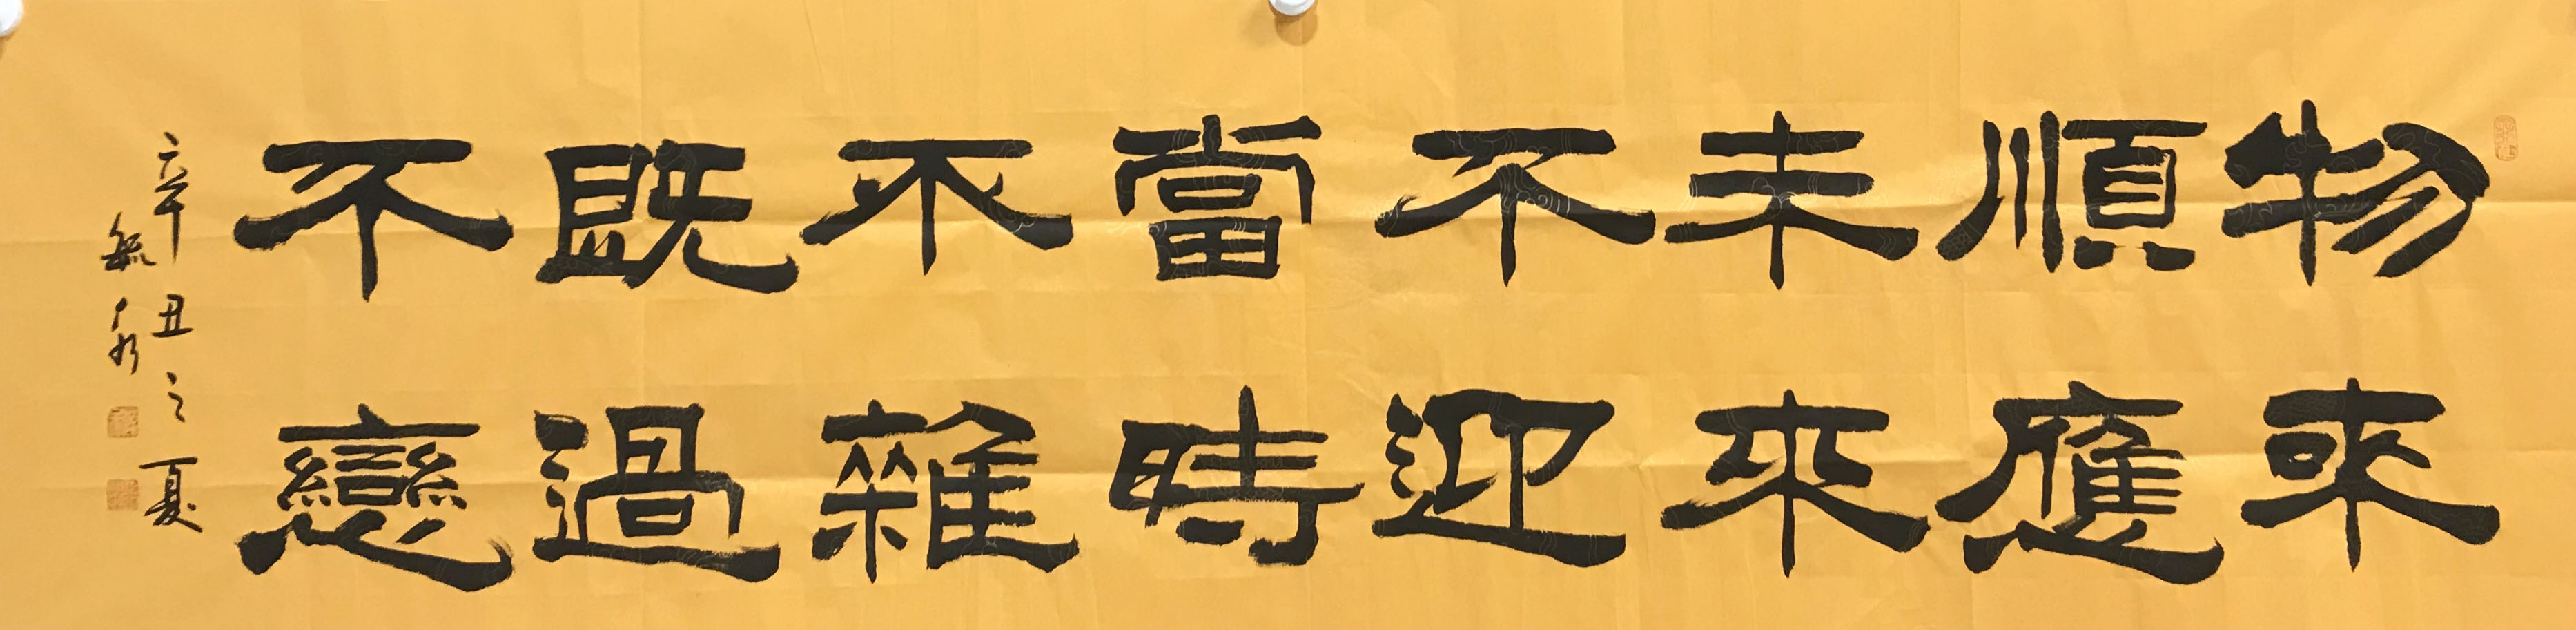 物來
順應
未來
不迎
當時
不雜
既過
不戀
辛丑之夏